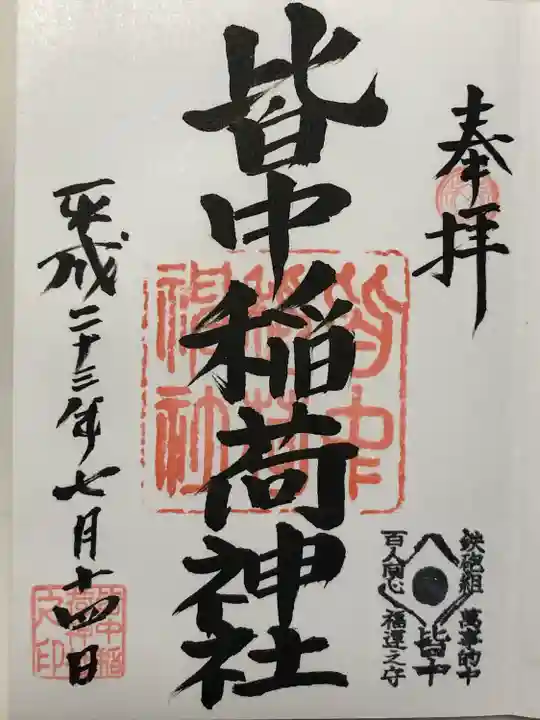 奉拝
皆中稲荷神社
平成二十三年七月十四日
鉄砲組
萬事的中
皆中
百人同心
福運之守
皆中稲荷神社